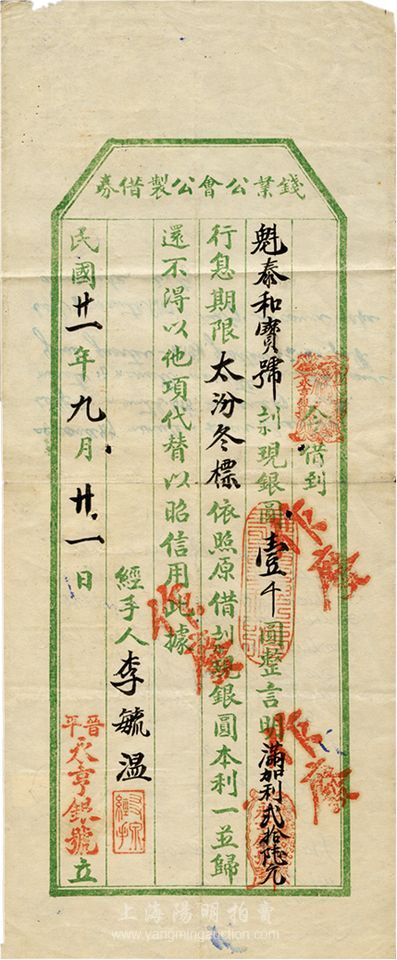 錢業公會公製借券
今借到
魁泰和寶號名下現銀圓壹千圓整言明滿加利弍拾陸元
行息期限太汾冬標依照原借現銀圓本利一並歸
還不得以他項代替以昭信用此據
經手人李毓温
民國廿一年九月廿一日
晉平永亨銀號立
作廢
作廢
作廢
上海陽明拍賣
www.yangmingauction.com